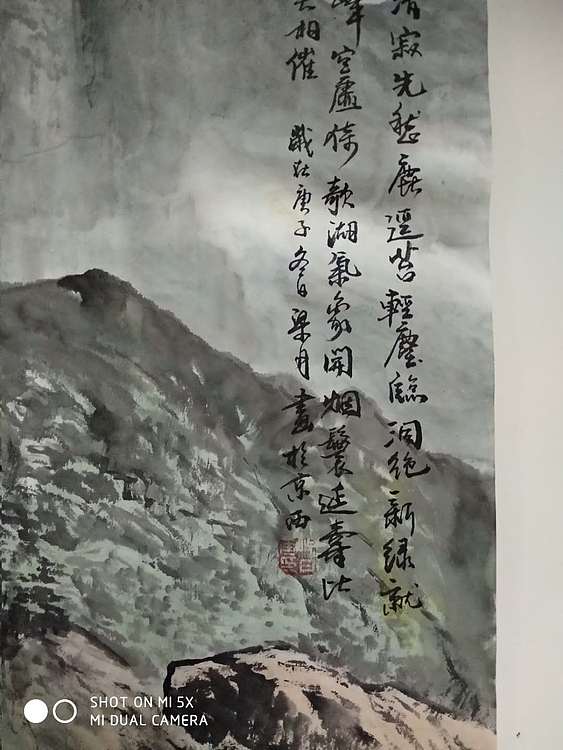 清寂先愁鹿逕苔輕塵臨洞絶新緑就
峰空廬倚欹湖氣象開烟鬟延壽比
相催 歲在庚子冬日梁月畫於京西
SHOT ON MI 5X
MI DUAL CAMERA